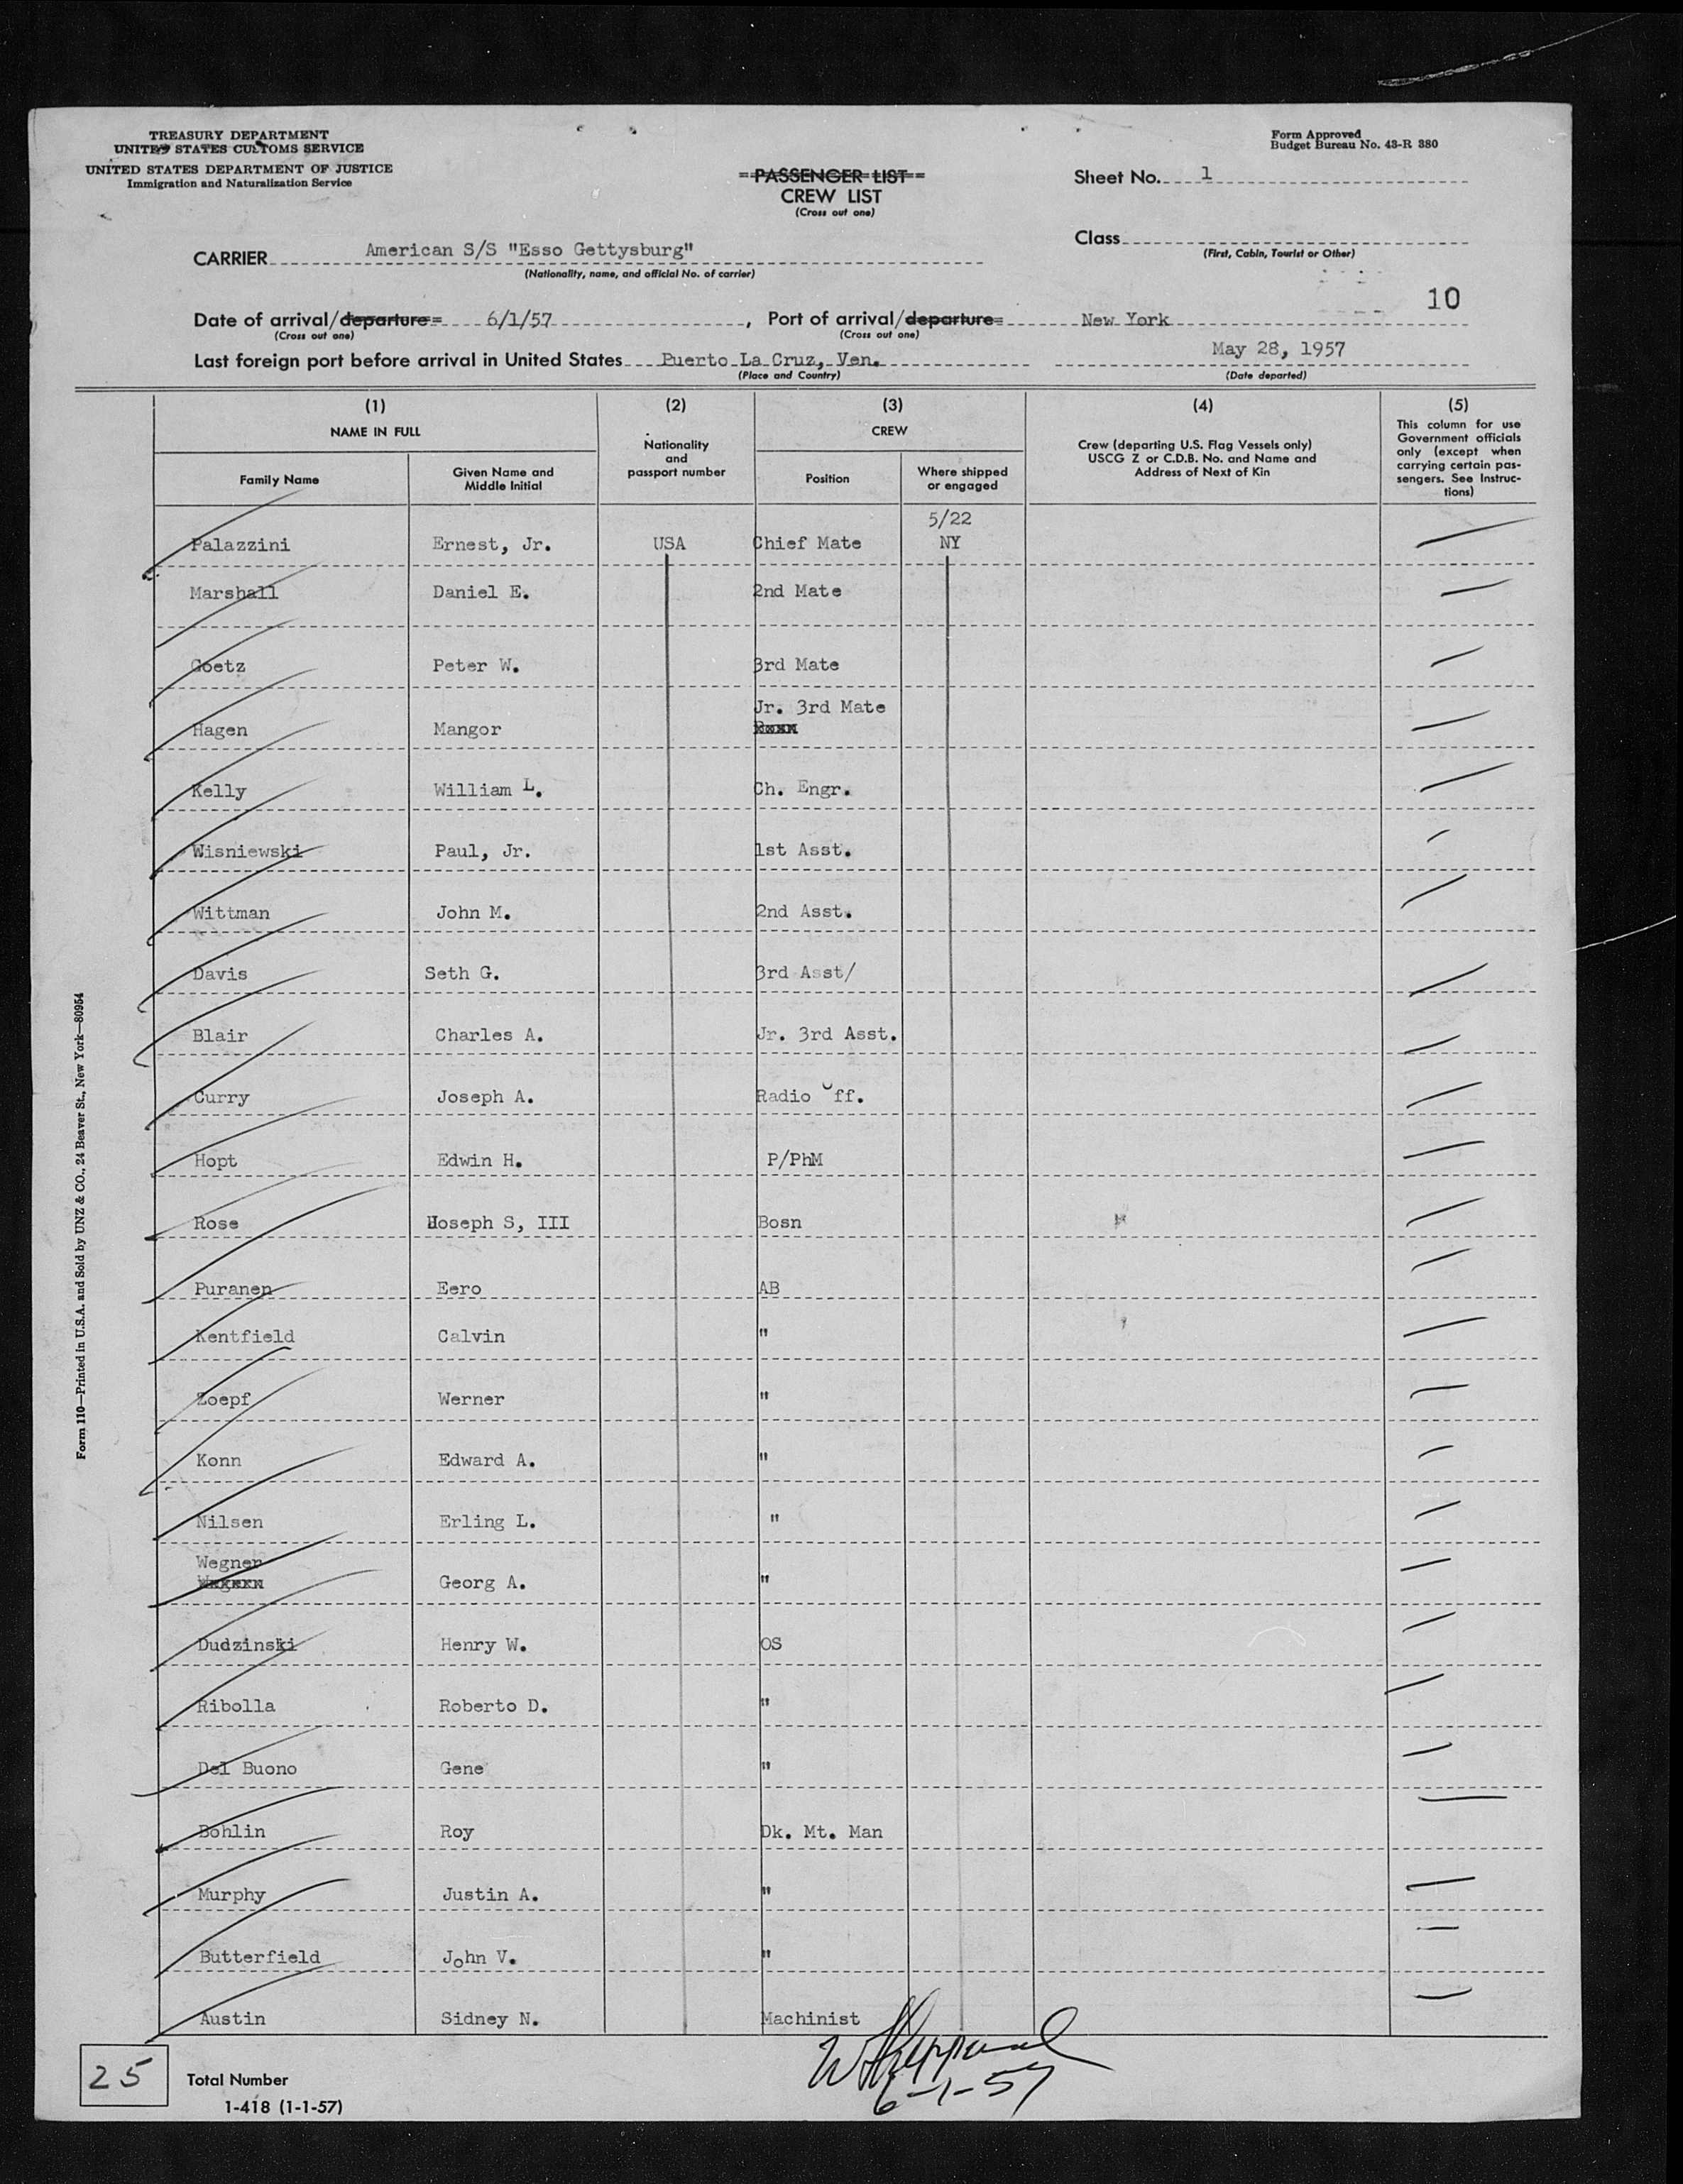 TREASURY DEPARTMENT
UNITED STATES CUSTOMS SERVICE
UNITED STATES DEPARTMENT OF JUSTICE
Immigration and Naturalization Service
PASSENGER LIST
CREW LIST
(Cross out one)
Form Approved
Budget Bureau No. 43-R 380
Sheet No. 1
Class
(First, Cabin, Tourist or Other)
CARRIER American S/S "Esso Gettysburg"
(Nationality, name, and official No. of carrier)
10
Date of arrival/departure 6/1/57, Port of arrival/departure New York
(Cross out one) (Cross out one)
Last foreign port before arrival in United States Puerto La Cruz, Ven. May 28, 1957
(Place and Country) (Date departed)
(1) (2) (3) (4) (5)
NAME IN FULL
Family Name
Given Name and
Middle Initial
Nationality
and
passport number
CREW
Position
Where shipped
or engaged
Crew (departing U.S. Flag Vessels only)
USCG Z or C.D.B. No. and Name and
Address of Next of Kin
This column for use
Government officials
only (except when
carrying certain pas-
sengers. See Instruc-
tions)
5/22
Palazzini Ernest, Jr. USA Chief Mate NY
Marshall Daniel E. 2nd Mate
Goetz Peter W. 3rd Mate
Jr. 3rd Mate
Hagen Mangor
Kelly William L. Ch. Engr.
Wisniewski Paul, Jr. 1st Asst.
Wittman John M. 2nd Asst.
Davis Seth G. 3rd Asst/
Blair Charles A. Jr. 3rd Asst.
Curry Joseph A. Radio Off.
Hopt Edwin H. P/PhM
Rose Joseph S, III Bosn
Puranen Eero AB
Kentfield Calvin "
Zoepf Werner "
Konn Edward A. "
Nilsen Erling L. "
Wegner
Georg A. "
Dudzinski Henry W. OS
Ribolla Roberto D. "
Del Buono Gene "
Bohlin Roy Dk. Mt. Man
Murphy Justin A. "
Butterfield John V. "
Austin Sidney N. Machinist
25 Total Number
1-418 (1-1-57)
6-1-57
Form 110—Printed in U.S.A. and Sold by UNZ & CO., 24 Beaver St., New York—80954